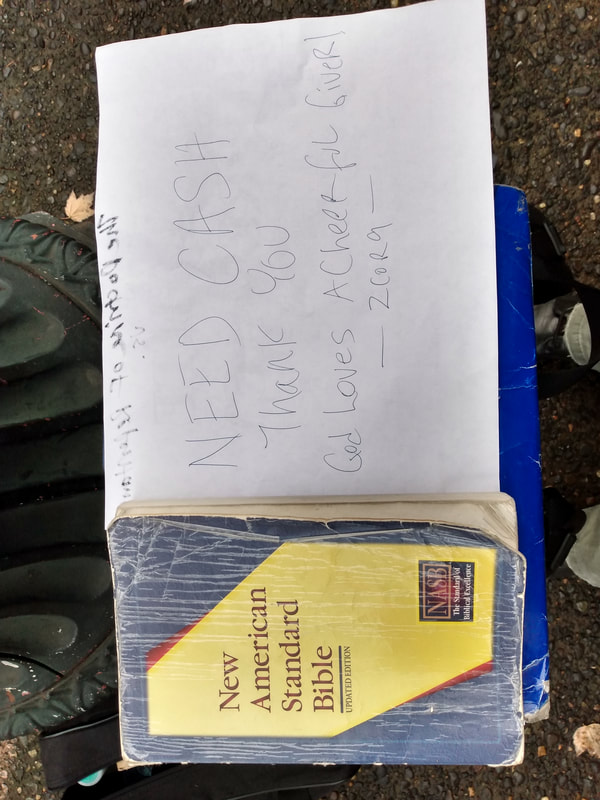 NEED CASH
Thank YOU
God Loves A Cheerful GiveR!
— 2COR9 —
New
American
Standard
Bible
UPDATED EDITION
NASB
The Standard of
Biblical Excellence